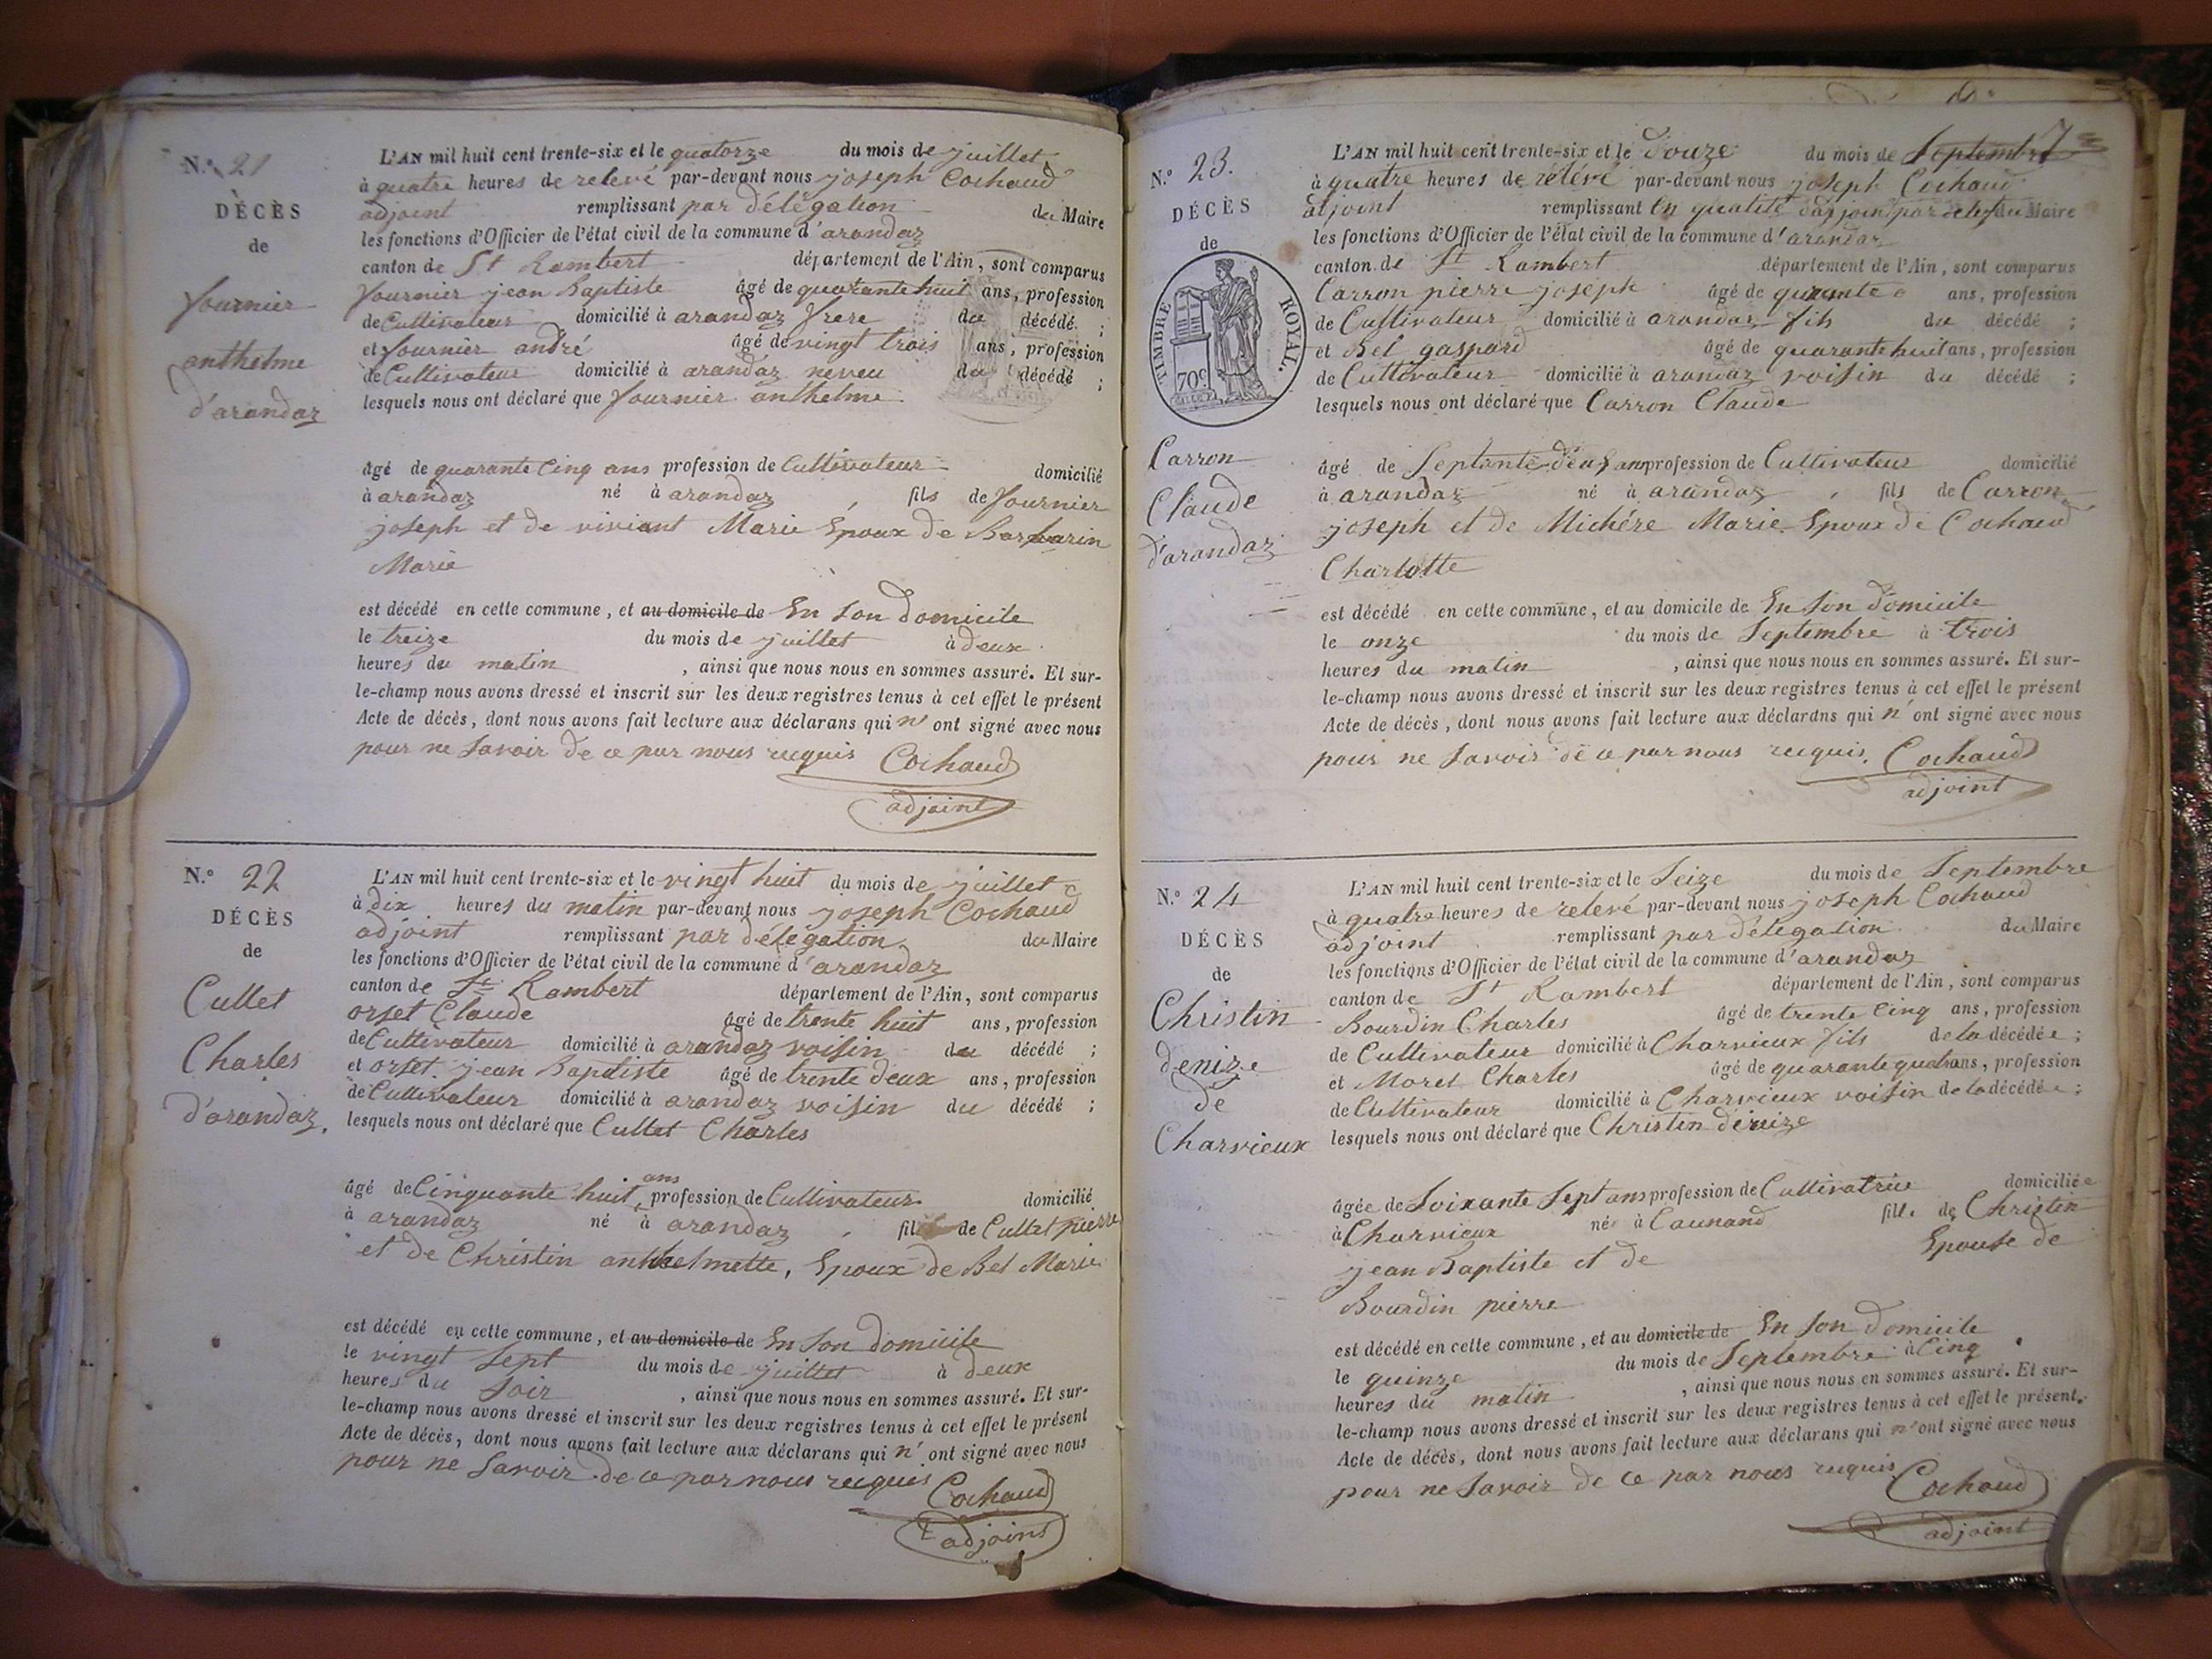 N.º 21
DÉCÈS
de
fournier
anthelme
d'arandaz
L'AN mil huit cent trente-six et le quatorze du mois de juillet
à quatre heures de relevé par-devant nous joseph Cochaud
adjoint remplissant par délégation du Maire
les fonctions d'Officier de l'état civil de la commune d'arandaz
canton de St Rambert département de l'Ain, sont comparus
fournier jean Baptiste âgé de quarante huit ans, profession
de Cultivateur domicilié à arandaz frere du décédé ;
et fournier andré âgé de vingt trois ans, profession
de Cultivateur domicilié à arandaz neveu du décédé ;
lesquels nous ont déclaré que fournier anthelme
âgé de quarante Cinq ans profession de Cultivateur domicilié
à arandaz né à arandaz , fils de fournier
joseph et de viviant Marie Epoux de Barbarin
Marie
est décédé en cette commune, et au domicile de En son domicile
le treize du mois de juillet à deux
heures du matin , ainsi que nous nous en sommes assuré. Et sur-
le-champ nous avons dressé et inscrit sur les deux registres tenus à cet effet le présent
Acte de décès, dont nous avons fait lecture aux déclarans qui n' ont signé avec nous
pour ne savoir de ce par nous requis Cochaud
adjoint
N.º 22
DÉCÈS
de
Cullet
Charles
d'arandaz.
L'AN mil huit cent trente-six et le vingt huit du mois de juillet
à dix heures du matin par-devant nous joseph Cochaud
adjoint remplissant par délégation du Maire
les fonctions d'Officier de l'état civil de la commune d'arandaz
canton de St Rambert département de l'Ain, sont comparus
orset Claude âgé de trente huit ans, profession
de Cultivateur domicilié à arandaz voisin du décédé ;
et orset jean Baptiste âgé de trente deux ans, profession
de Cultivateur domicilié à arandaz voisin du décédé ;
lesquels nous ont déclaré que Cullet Charles
âgé de Cinquante huit ans profession de Cultivateur domicilié
à arandaz né à arandaz , fils de Cullet pierre
et de Christin anthelmette, Epoux de Bel Marie
est décédé en cette commune, et au domicile de En son domicile
le vingt sept du mois de juillet à deux
heures du soir , ainsi que nous nous en sommes assuré. Et sur-
le-champ nous avons dressé et inscrit sur les deux registres tenus à cet effet le présent
Acte de décès, dont nous avons fait lecture aux déclarans qui n' ont signé avec nous
pour ne savoir de ce par nous requis Cochaud
adjoint
7
N.º 23.
DÉCÈS
de
TIMBRE ROYAL.
70c
Carron
Claude
d'arandaz
L'AN mil huit cent trente-six et le Douze du mois de Septembre
à quatre heures de relevé par-devant nous joseph Cochaud
adjoint remplissant en qualité d'adjoint par du Maire
les fonctions d'Officier de l'état civil de la commune d'arandaz
canton de St Rambert département de l'Ain, sont comparus
Carron pierre joseph âgé de ans, profession
de Cultivateur domicilié à arandaz fils du décédé ;
et Bel gaspard âgé de quarante huit ans, profession
de Cultivateur domicilié à arandaz voisin du décédé ;
lesquels nous ont déclaré que Carron Claude
âgé de Septante deux ans profession de Cultivateur domicilié
à arandaz né à arandaz , fils de Carron
joseph et de Michére Marie Epoux de Cochaud
Charlotte
est décédé en cette commune, et au domicile de En son domicile
le onze du mois de Septembre à trois
heures du matin , ainsi que nous nous en sommes assuré. Et sur-
le-champ nous avons dressé et inscrit sur les deux registres tenus à cet effet le présent
Acte de décès, dont nous avons fait lecture aux déclarans qui n' ont signé avec nous
pour ne savoir de ce par nous requis. Cochaud
adjoint
N.º 24
DÉCÈS
de
Christin
denize
de
Charvieux
L'AN mil huit cent trente-six et le Seize du mois de Septembre
à quatre heures de relevé par-devant nous joseph Cochaud
adjoint remplissant par délégation du Maire
les fonctions d'Officier de l'état civil de la commune d'arandaz
canton de St Rambert département de l'Ain, sont comparus
Bourdin Charles âgé de trente Cinq ans, profession
de Cultivateur domicilié à Charvieux fils de la décédée ;
et Moret Charles âgé de quarante quatre ans, profession
de Cultivateur domicilié à Charvieux voisin de la décédée ;
lesquels nous ont déclaré que Christin denize
âgée de Soixante Sept ans profession de Cultivatrice domiciliée
à Charvieux née à Caunand fille de Christin
jean Baptiste et de Epouse de
Bourdin pierre
est décédé en cette commune, et au domicile de En son domicile
le quinze du mois de Septembre à Cinq
heures du matin , ainsi que nous nous en sommes assuré. Et sur-
le-champ nous avons dressé et inscrit sur les deux registres tenus à cet effet le présent
Acte de décès, dont nous avons fait lecture aux déclarans qui n' ont signé avec nous
pour ne savoir de ce par nous requis Cochaud
adjoint